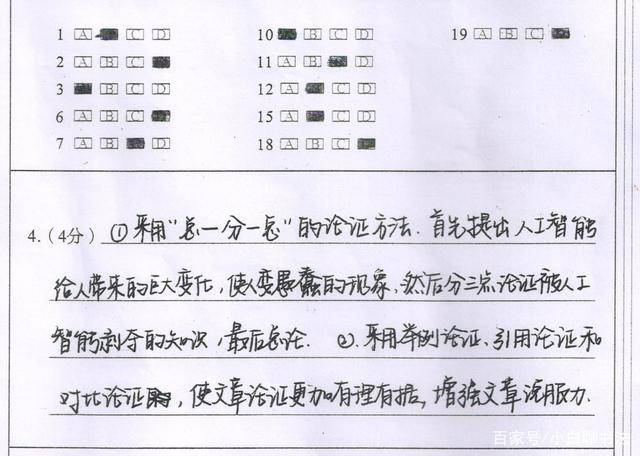 1 A B C D 10 A B C D 19 A B C D
2 A B C D 11 A B C D
3 A B C D 12 A B C D
6 A B C D 15 A B C D
7 A B C D 18 A B C D
4.(4分) ①采用“总一分一总”的论证方法.首先提出人工智能
给人带来的巨大变化,使人变愚蠢的现象,然后分三点论证被人工
智能剥夺的知识,最后总论. ②.采用举例论证、引用论证和
对比论证,使文章论证更加有理有据,增强文章说服力.
百家号/小白聊书法